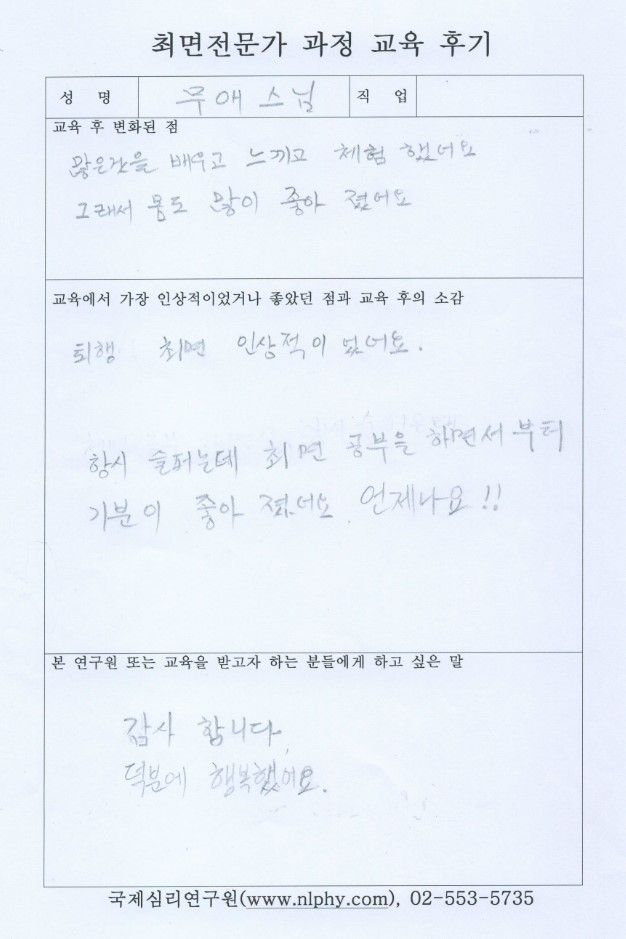 최면전문가 과정 교육 후기
성 명 무애 스님 직 업
교육 후 변화된 점
많은것을 배우고 느끼고 체험 했너요
그래서 몸도 많이 좋아 졌어요
교육에서 가장 인상적이었거나 좋았던 점과 교육 후의 소감
퇴행 최면 인상적이 었너요.
항시 슬퍼는데 최면 공부을 하면서 부터
기분이 좋아 졌너요. 언제나요!!
본 연구원 또는 교육을 받고자 하는 분들에게 하고 싶은 말
감사 합니다.
덕분에 행복했어요.
국제심리연구원(www.nlphy.com), 02-553-5735